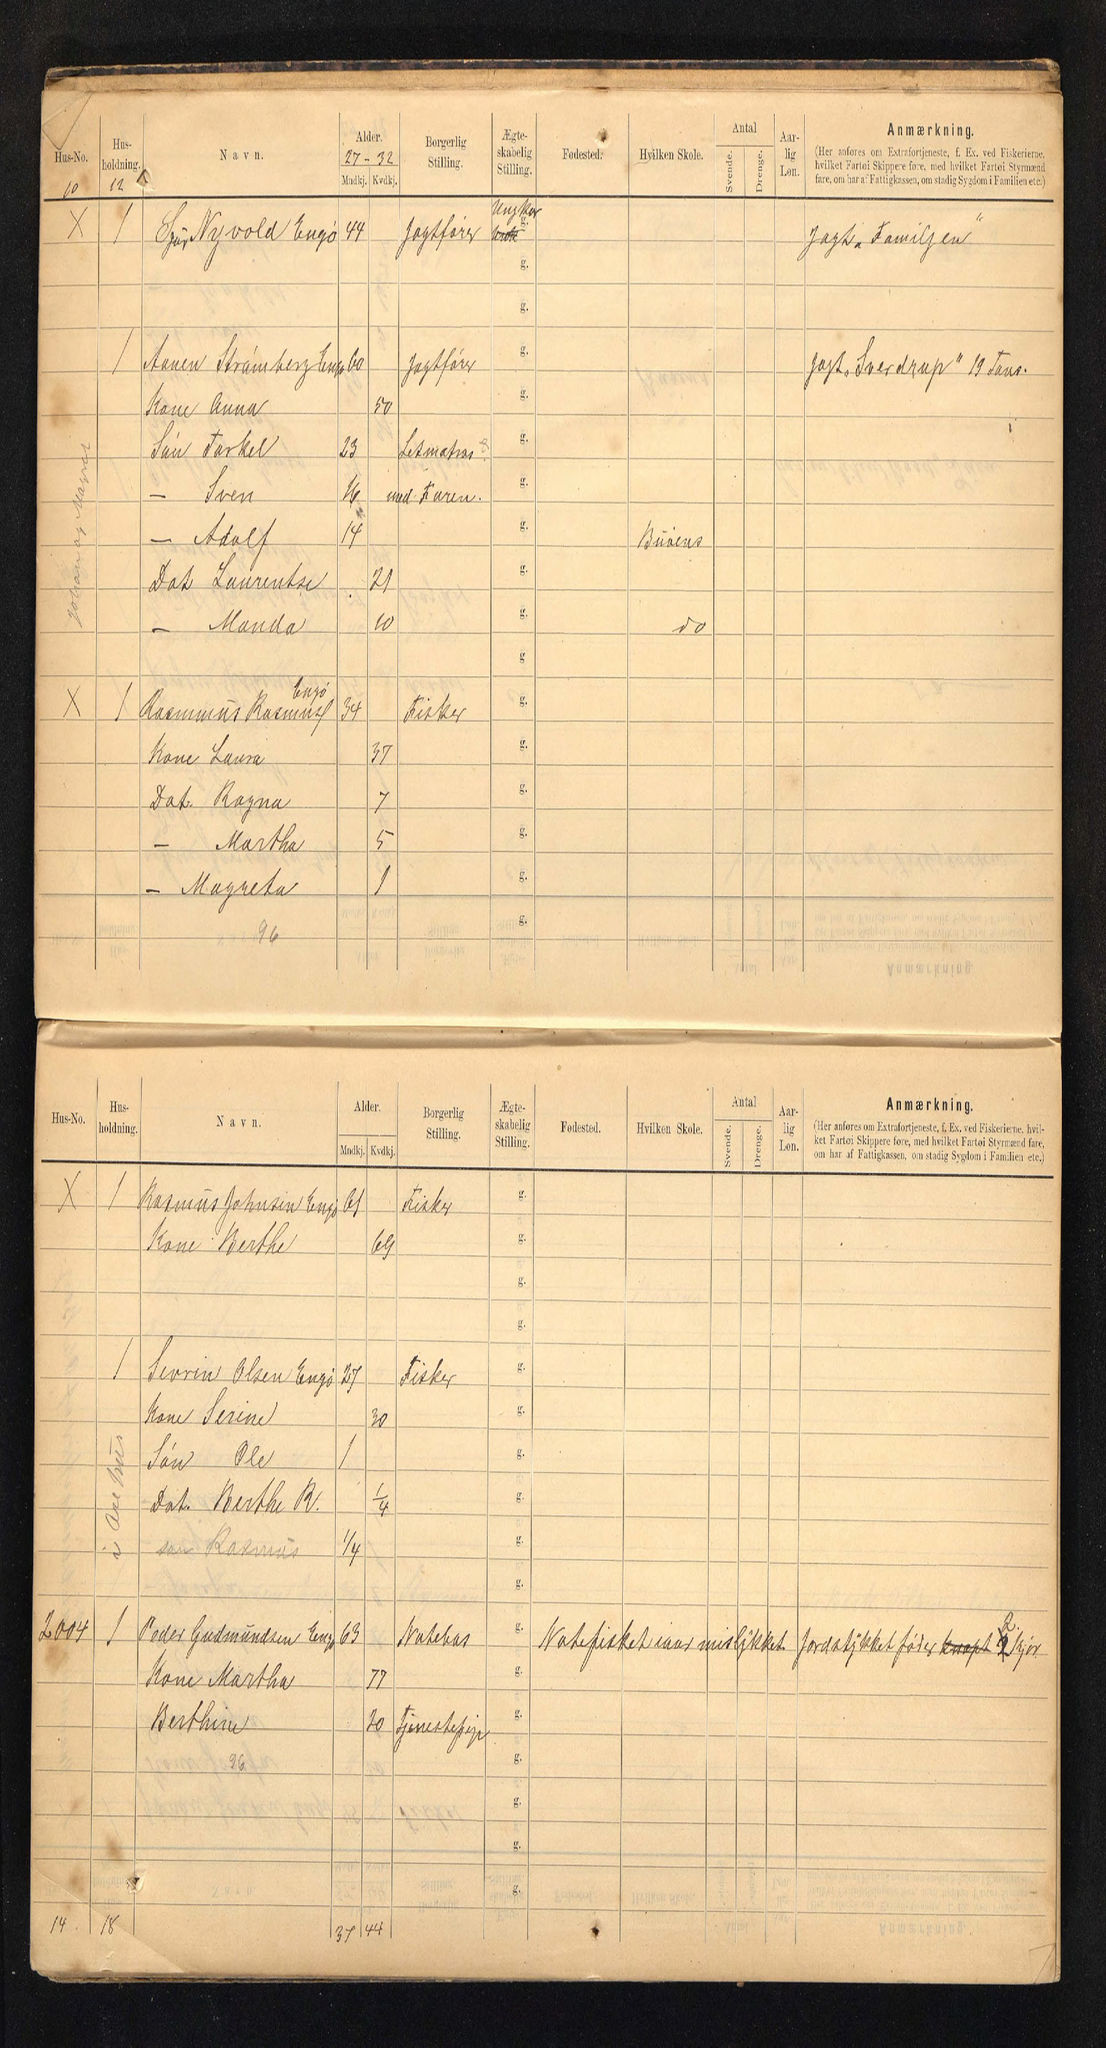 Hus-No. Hus-holdning. Navn. Alder. 27 - 32 Mndkj. Kvdkj. Borgerlig Stilling. Ægte-skabelig Stilling. Fødested. Hvilken Skole. Antal Svende. Drenge. Aar-lig Løn. Anmærkning.
(Her anføres om Extrafortjeneste, f. Ex. ved Fiskerierne, hvilket Fartøi Skippere føre, med hvilket Fartøi Styrmænd fare, om har af Fattigkassen, om stadig Sygdom i Familien etc.)
10 12
X 1 Nyvold Engø 44 Jagtfører Ungkar g. Jagt „Familjen"
g.
g.
1 Aanen Strømberg Engø 60 Jagtfører g. Jagt „Sverdrup" 19 Tons.
Kone Anna 50 g.
Søn Torkel 23 Letmatros g.
— Sven 16 med Faren. g.
— Adolf 14 g. Buøens
Dat Laurentse 21 g.
— Manda 10 g. do
Johan og Margret
g
X 1 Rasmus Rasmus Engø 34 Fisker g.
Kone Laura 37 g.
Dat. Ragna 7 g.
— Martha 5 g.
— Magreta 1 g.
96 g.
Hus-No. Hus-holdning. Navn. Alder. Mndkj. Kvdkj. Borgerlig Stilling. Ægte-skabelig Stilling. Fødested. Hvilken Skole. Antal Svende. Drenge. Aar-lig Løn. Anmærkning.
(Her anføres om Extrafortjeneste, f. Ex. ved Fiskerierne, hvil-ket Fartøi Skippere føre, med hvilket Fartøi Styrmænd fare, om har af Fattigkassen, om stadig Sygdom i Familien etc.)
X 1 Rasmus Johnsen Engø 61 Fisker g.
Kone Berthe 69 g.
g.
g.
1 Sevrin Olsen Engø 27 Fisker g.
Kone Serine 30 g.
Søn Ole 1 g.
Dat. Berthe R. 1/4 g.
søn Rasmus 1/4 g.
g.
2004 1 Peder Gudmundsen Engø 63 Notebas g. Notefisket iaar mislykket Jordstykket føder knapt 2 Kjør
Kone Martha 77 g.
Berthine 20 Tjenestepige g.
96 g.
g.
g.
g.
14 18 37 44